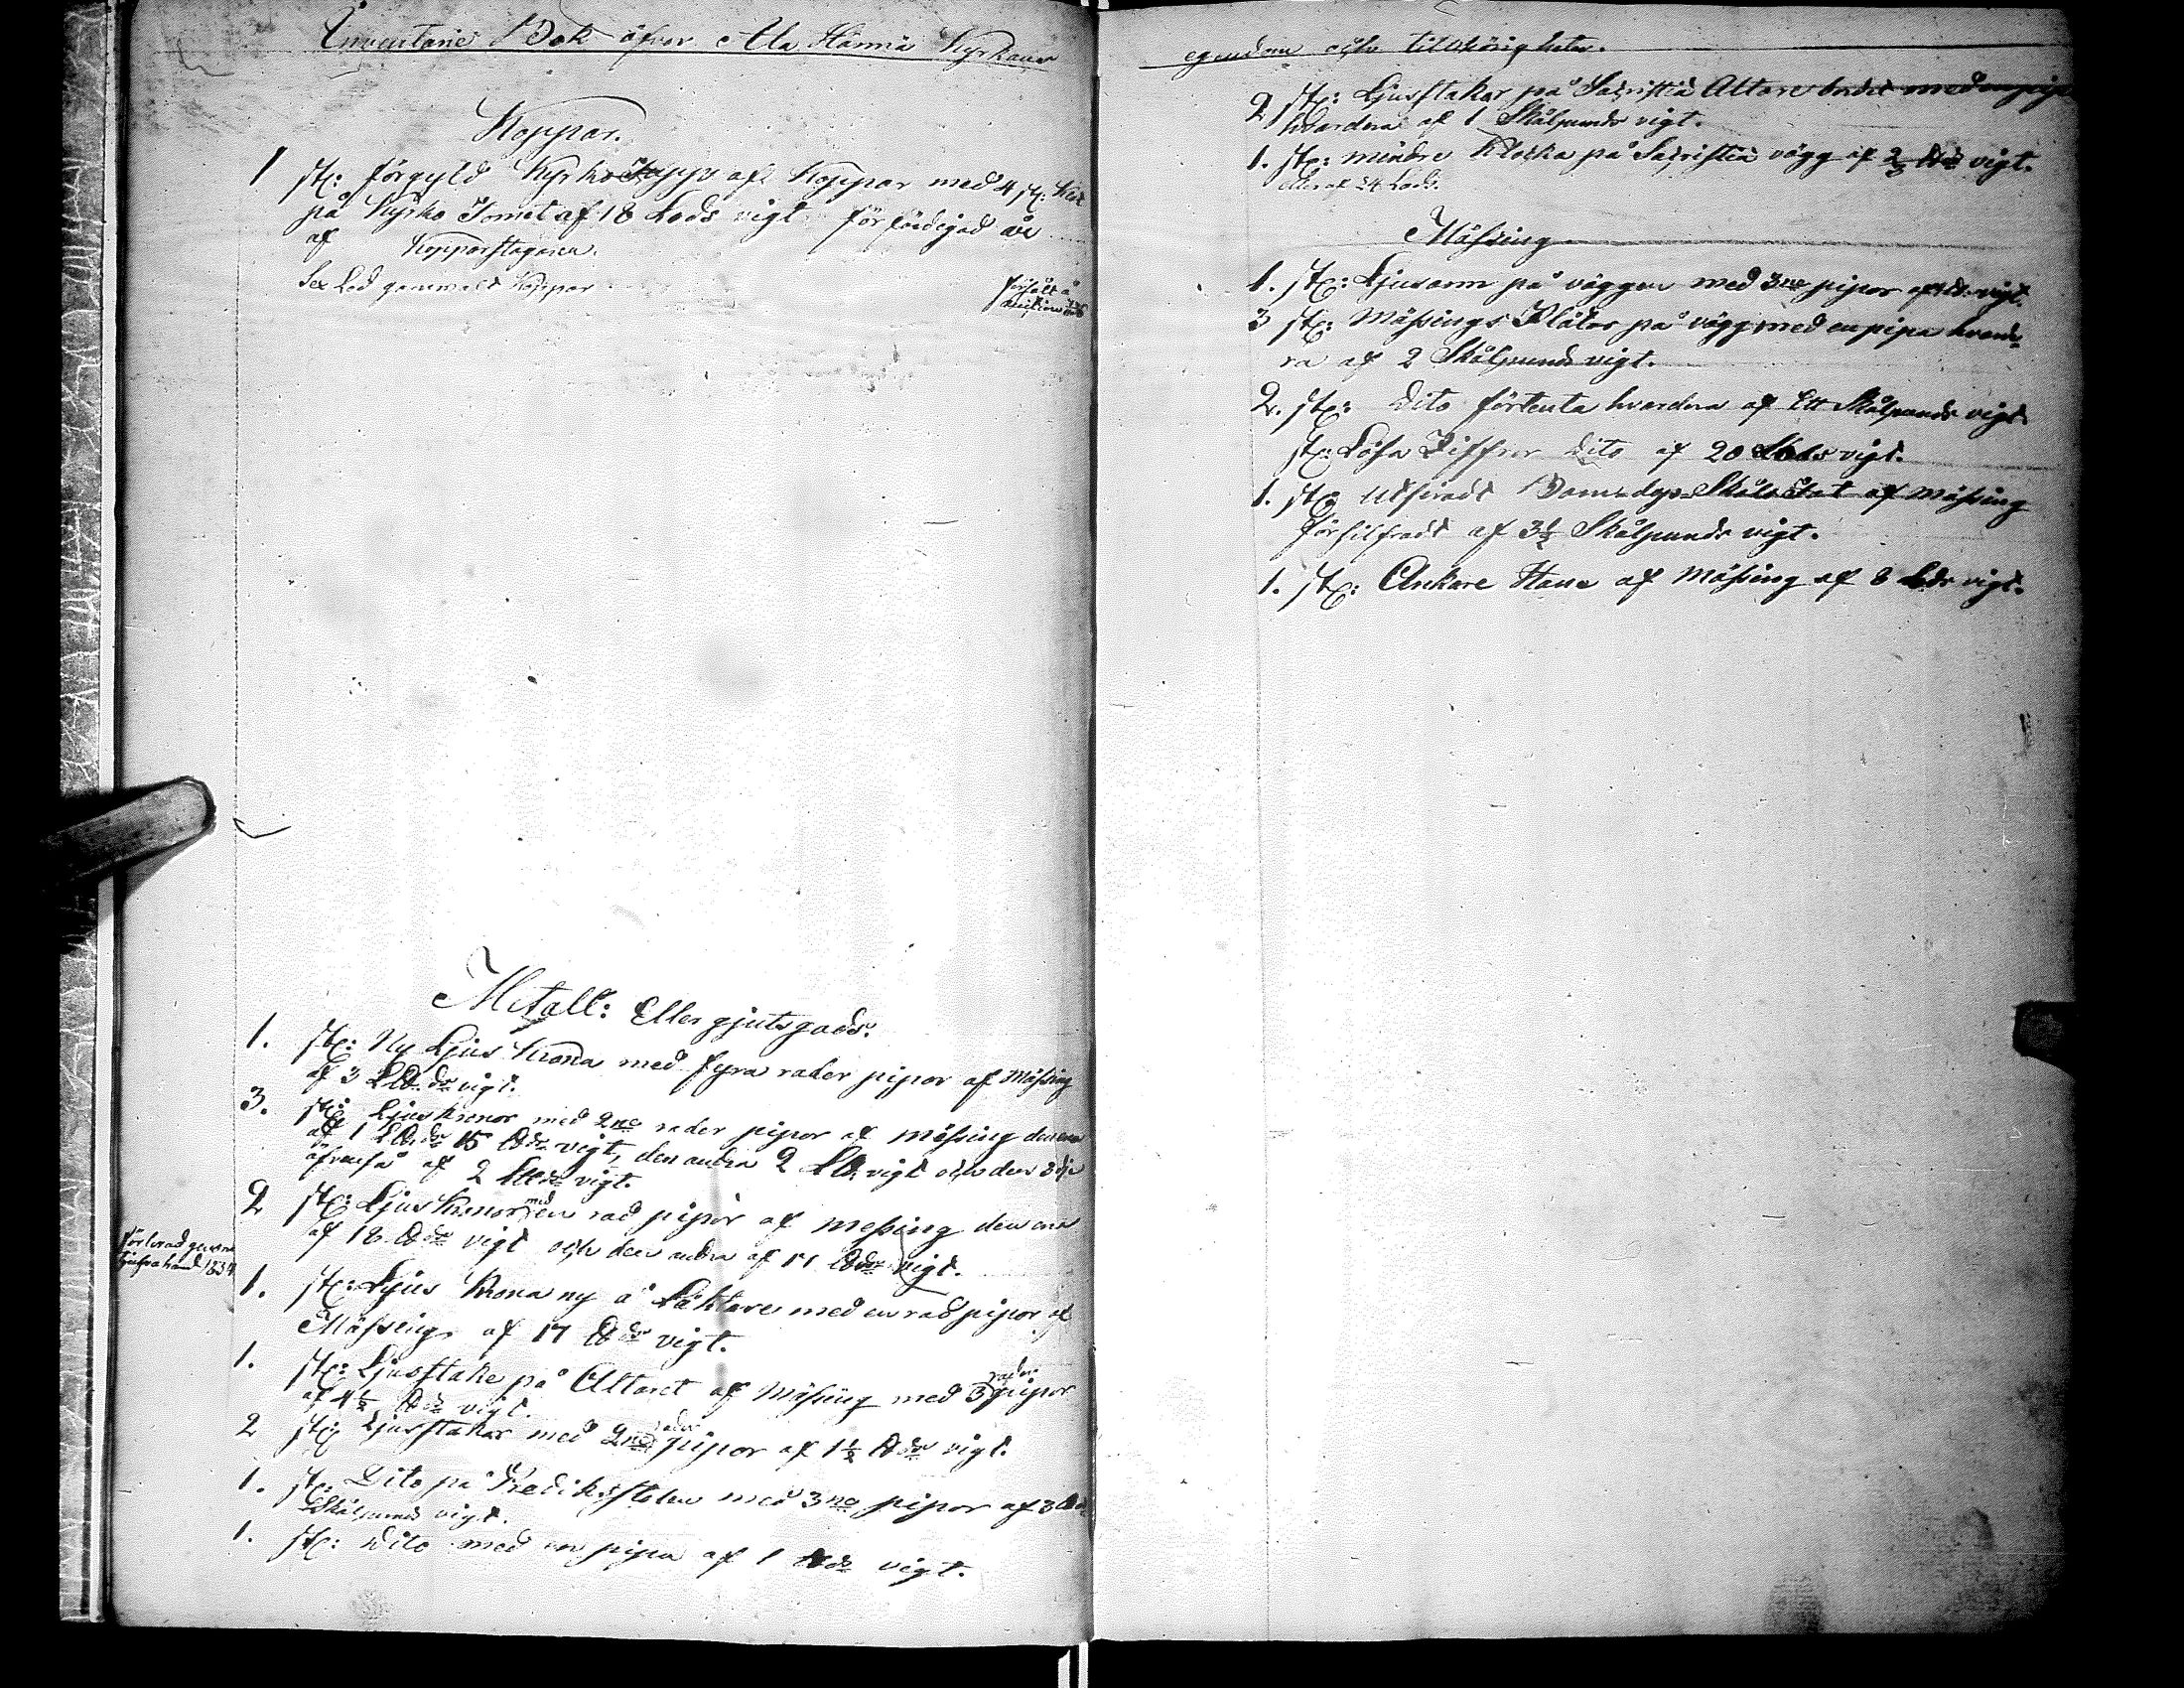 Inventarie Bok öfver Ala Härmä Kyrkans
Koppar.
1 st: förgyld Kyrko Tupp af Koppar med 4 st:
på Kyrko Tornet af 18 Lods vigt förfärdigad
af Kopparslagaren
Sex Lod gammalt Koppar
försålt å
auktion
Metall: Eller gjutgods:
1. st: Ny Ljus Krona med fyra rader pipor af Mässing
af 3 L℔ds vigt.
3. st: Ljuskronor med 2ne rader pipor af mässing den ena
af 1 L℔d 15 ℔ds vigt, den andra 2 L℔ vigt och den 3dje
äfvenså af 2 L℔ds vigt.
2 st: Ljus Kronor med en rad pipor af messing den ena
af 18 ℔ds vigt och den andra af 11 ℔ds vigt.
förlorad genom
tjufva hand 1834
1. st: Ljus Krona ny å Läktare med en rad pipor af
Mässing af 17 ℔ds vigt.
1. st: Ljusstake på Altaret af Mässing med 3 rader pipor
af 4½ ℔ds vigt.
2 st: Ljusstakar med 2ne rader pipor af 1½ ℔ds vigt.
1. st: Dito på Predikstolen med 3ne pipor af 3
Skålpunds vigt.
1. st: Dito med en pipa af 1 ℔ds vigt.
egendom och tillhörigheter.
2 st: Ljusstakar på Sacristiä Altare med en pipa
hvardera af 1 Skålpunds vigt.
1. st: mindre Klocka på Sacristiä vägg af vigt.
eller af 24 Lods.
Mässing
1. st: Ljusarm på väggen med 3ne pipor af vigt.
3 st: Mässings Plåtar på vägg med en pipa hvarde-
ra af 2 Skålpunds vigt.
2. st: Dito förtenta hvardera af Ett Skålpunds vigt
st: Lösa Ziffror dito af 20 Lods vigt.
1. st: Utsiradt af Mässing
försilfradt af 3½ Skålpunds vigt.
1. st: Ankare Hane af Mässing af 8 Lods vigt.